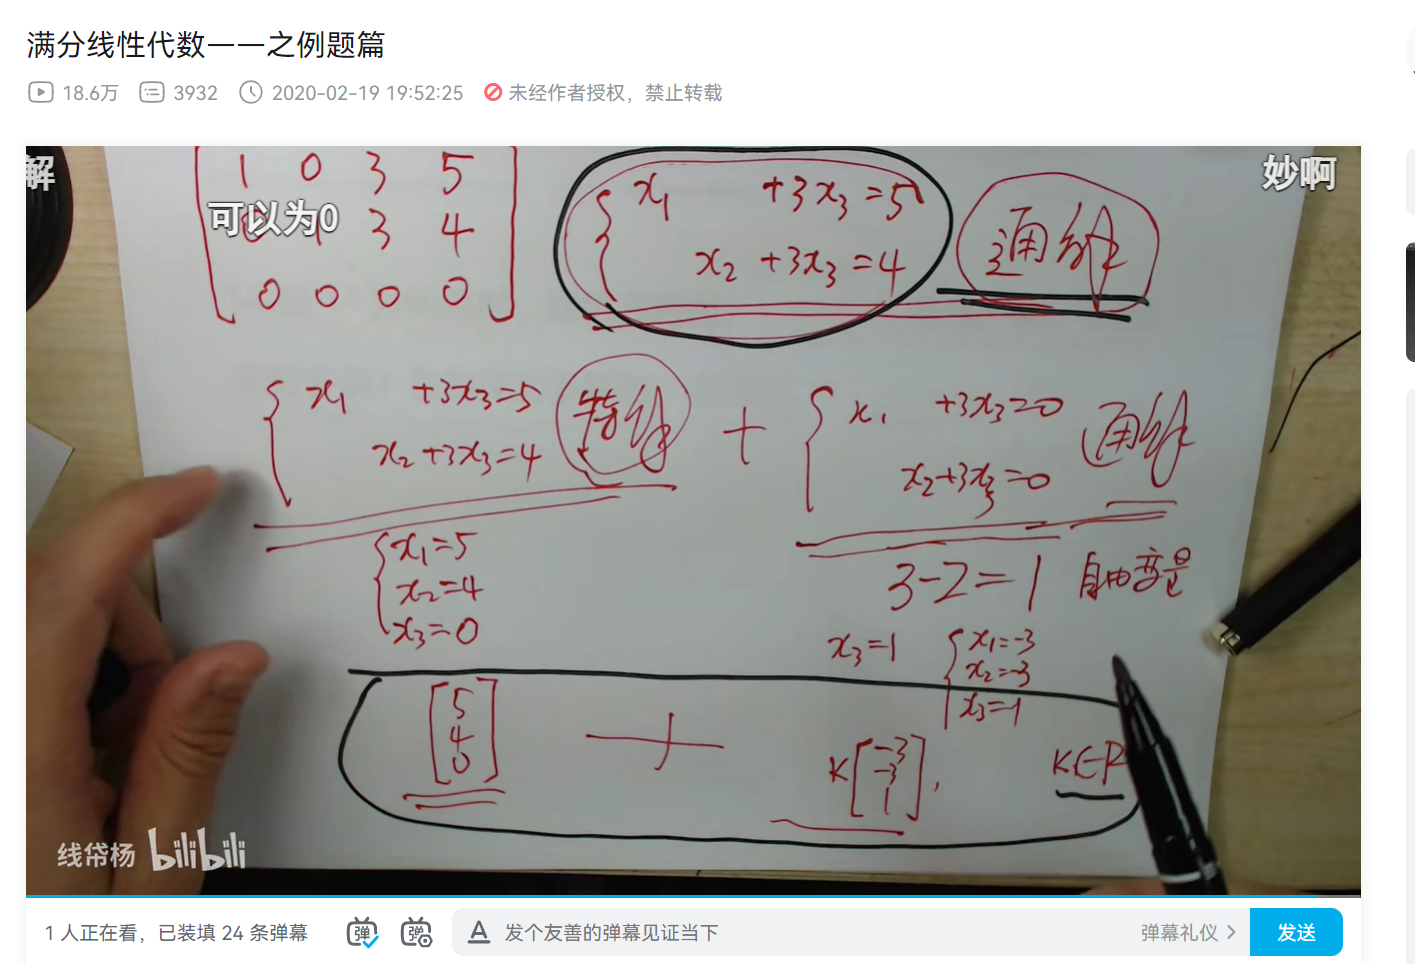 满分线性代数一一之例题篇
18.6万 3932 2020-02-19 19:52:25 未经作者授权，禁止转载
解
妙啊
1 0 3 5
可以为0
3 4
0 0 0 0
x₁ +3x₃=5
x₂ +3x₃=4
通解
x₁ +3x₃=5
x₂+3x₃=4
特解
+
x₁ +3x₃=0
x₂+3x₃=0
通解
x₁=5
x₂=4
x₃=0
3-2=1 自由变量
x₃=1
x₁=-3
x₂=-3
x₃=1
[5 4 0] + K[-3 -3 1], K∈R
线帒杨 bilibili
1 人正在看，已装填 24 条弹幕
弹
弹
A 发个友善的弹幕见证当下
弹幕礼仪 >
发送